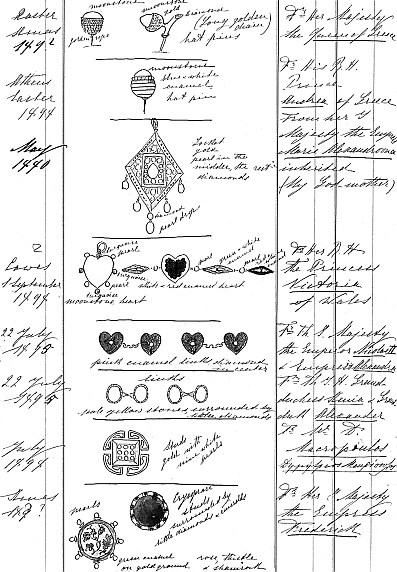 Easter
1892
moonstone
golden rope
moonstone
gold
diamond
(Long golden
chain)
hat pins
Fr Her Majesty
the Queen of Greece
Athens
Easter
1894
moonstone
blue & white
enamel
hat pin
Fr His R. H.
Prince
Andrea of Greece
May
1880
Locket
gold
pearl in the
middle, the rest
diamonds
pearl drops
From her I
Majesty the Empress
Marie Alexandrovna
inherited
(My God mother)
Cowes
September
1894
turquoise
pearl
turquoise
pearl
turquoise
moonstone heart
white & red enamel heart
pearl
green & white
enamel
pearl
Fr Her R H
the Princess
Victoria
of Wales
22 July
1895
pink enamel links diamond
in center
Fr Th I. Majesty
the Emperor Nicolas II
& Empress Alexandra
22 July
1895
links
pale yellow stones surrounded by
little diamonds
Fr Th I H Grand
duchess Xenia & Grand
duke Alexander
July
1894
Studs
gold with
nine white
pearls
Fr Mr
Macropoulos
189?
pearls
green enamel
on gold ground
studs
surrounded by
little diamonds & emeralds
rose, thistle
& shamrock
Fr Her I Majesty
the Empress
Frederick